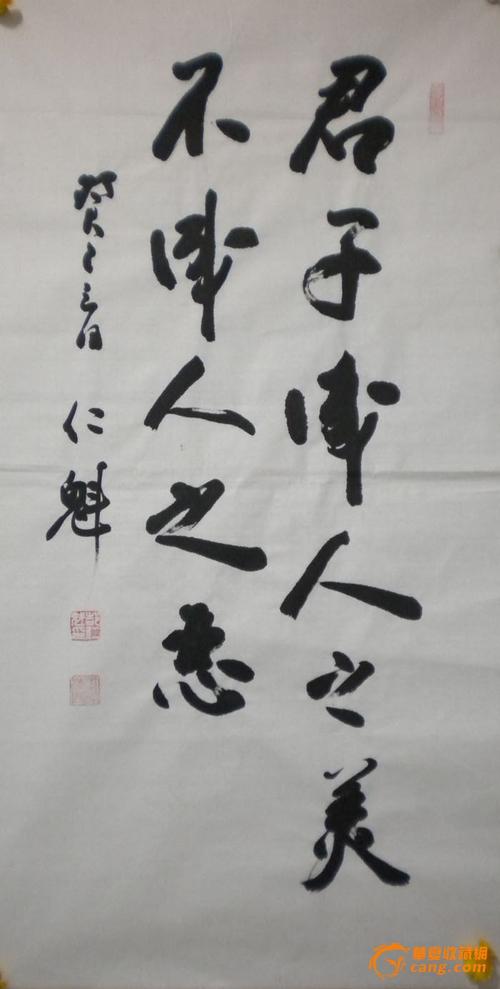 君子成人之美
不成人之恶
癸巳三月
仁魁
華夏收藏網
cang.com